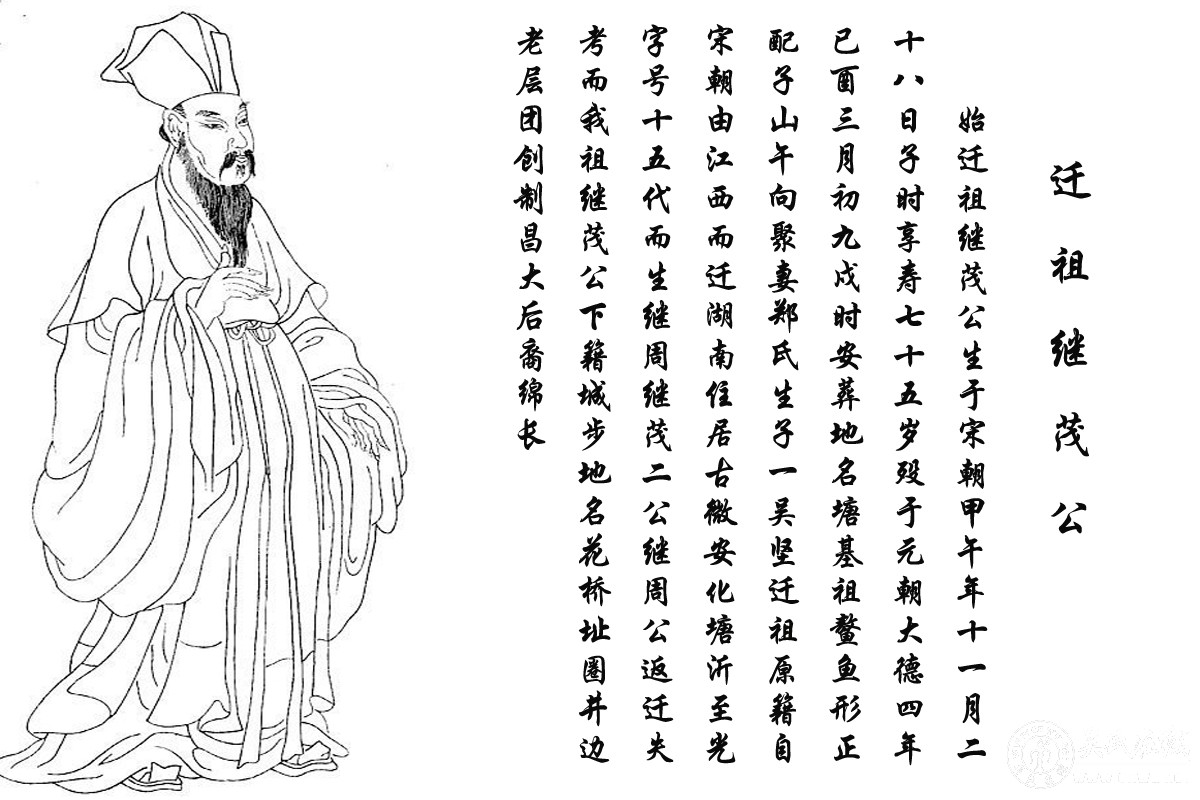 迁祖继茂公
始迁祖继茂公生于宋朝甲午年十一月二
十八日子时享寿七十五岁殁于元朝大德四年
已酉三月初九戍时安葬地名塘基祖鳌鱼形正
配子山午向聚妻郑氏生子一吴坚迁祖原籍自
宋朝由江西而迁湖南住居古微安化塘沂至光
字号十五代而生继周继茂二公继周公返迁失
考而我祖继茂公下籍城步地名花桥址圈井边
老层团创制昌大后裔绵长